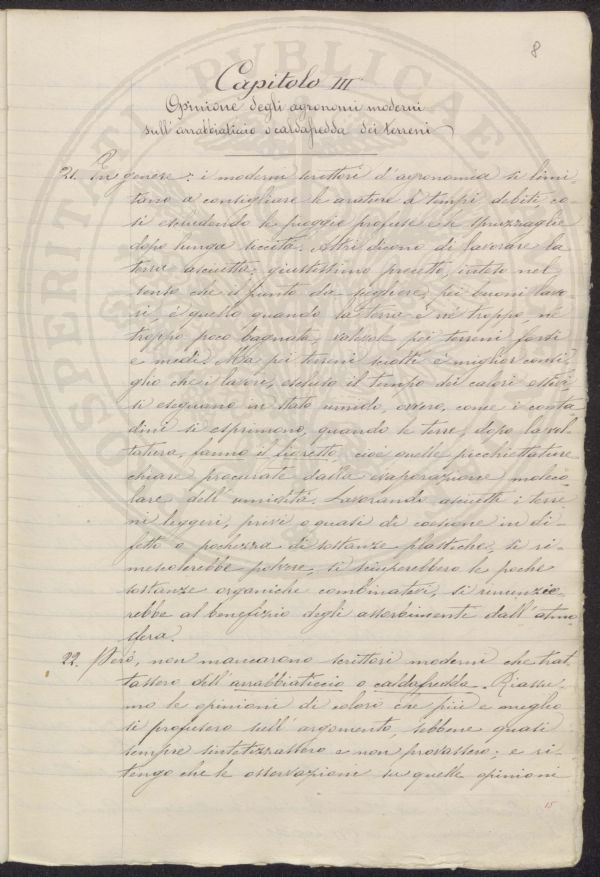 8
Capitolo III
Opinione degli agronomi moderni
sull'arrabbiaticcio o caldafredda dei terreni
21. In genere: i moderni scrittori d'agronomia si limi-
tano a consigliare le arature a tempi debiti, co-
sì escludendo le pioggie profuse e le spruzzaglie
dopo lunga siccità. Altri dicono di lavorare la
terra asciutta; giustissimo precetto, inteso nel
senso che il punto da cogliere, pei buoni lavo-
ri, è quello quando la terra è nè troppo, nè
troppo poco bagnata, valevole pei terreni forti
e medi. Ma pei terreni sciolti è miglior consi-
glio che i lavori, escluso il tempo dei calori estivi,
si eseguano in stato umido, ovvero, come i conta-
dini si esprimono, quando le terre, dopo la vol-
tatura, fanno il fioretto, cioè quelle picchiettature
chiare procurate dalla evaporazione moleco-
lare dell'umidità. Lavorando asciutti i terre-
ni leggeri, privi o quasi di coesione in di-
fetto o pochezza di sostanze plastiche, si ri-
mescolerebbe polvere, si scioglierebbero le poche
sostanze organiche combinatesi, si rinunzie-
rebbe al benefizio degli assorbimenti dall'atmo-
sfera.
22. Però, non mancarono scrittori moderni che trat-
tassero dell'arrabbiaticcio o caldafredda. Riassu-
mo le opinioni di coloro che più e meglio
si profusero sull'argomento, sebbene quasi
sempre sintetizzassero e non provassero; e ri-
tengo che le osservazioni su quelle opinione
15